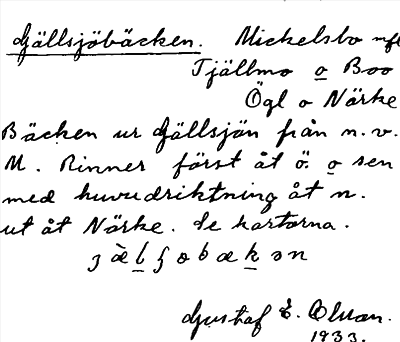 Gällsjöbäcken. Mickelsbo
Tjällmo o Boo
Ögl o Närke
Bäcken ur Gällsjön från n.v.
M. Rinner först åt ö. o sen
med huvudriktning åt n.
ut åt Närke. Se kartorna.
Gustaf E. Olsson.
1933.